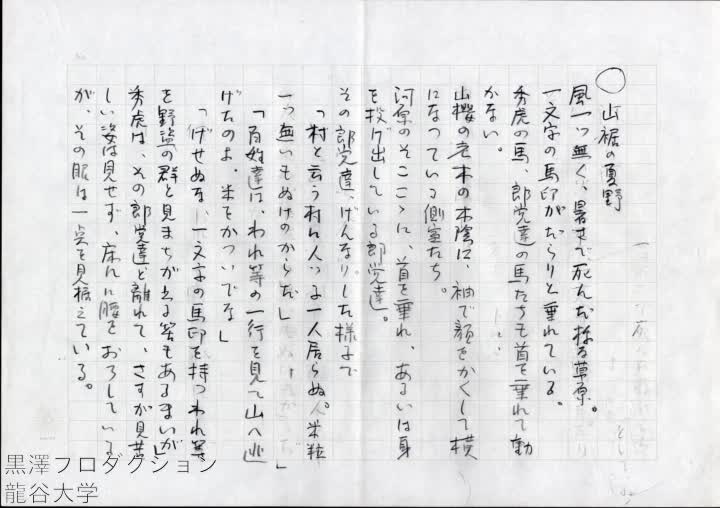 ○山裾の夏野
風一つ無く、暑さで死んだ様な草原。
一文字の馬印がだらりと垂れている。
秀虎の馬、郎党達の馬たちも首を垂れて動
かない。
山桜の老木の木陰に、袖で顔をかくして横
になっている側室たち。
河原のそこここに、首を垂れ、あるいは身
を投げ出している郎党達。
その郎党達、げんなりした様子で
「村と云う村に人っ子一人居らぬ。米粒
一つ無いもぬけのからだ」
「百姓達は、われ等の一行を見て山へ逃
げたのよ、米をかついでな」
「げせぬな、一文字の馬印を持つわれ等
を野盗の群と見まちがえる筈もあるまいが」
秀虎は、その郎党達と離れて、さすが見苦
しい姿は見せず、床几に腰をおろしている
が、その眼は一点を見据えている。
黒澤プロダクション
龍谷大学